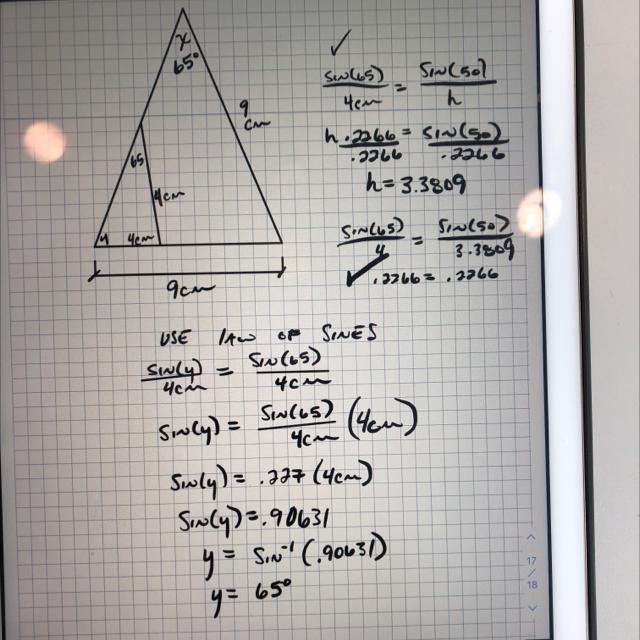 x
65°
9
cm
65
4cm
y 4cm
9cm
✓
Sin(65)/4cm = Sin(50)/h
h .2266/.2266 = Sin(50)/.2266
h = 3.3809
Sin(65)/4 = Sin(50)/3.3809
✓ .2266 = .2266
USE LAW OF SINES
Sin(y)/4cm = Sin(65)/4cm
Sin(y) = Sin(65)/4cm (4cm)
Sin(y) = .227 (4cm)
Sin(y) = .90631
y = Sin⁻¹ (.90631)
y = 65°
17
/
18